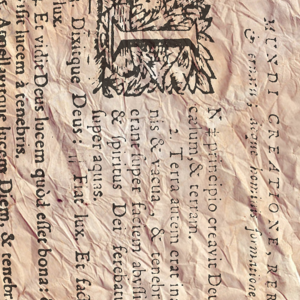 MUNDI CREATIONE, RER
& creatis: homi
N principio creavit Deu
cælum, & terram.
2. Terra autem erat in
nis & vacua, & tenebr
erant super faciem abyssi
& spiritus Dei ferebatu
super aquas
Dixitque Deus: Fiat lux. Et fac
lux.
Et vidit Deus lucem quòd esset bona:
sit lucem à tenebris.
Appellavitque lucem Diem, & tenebr